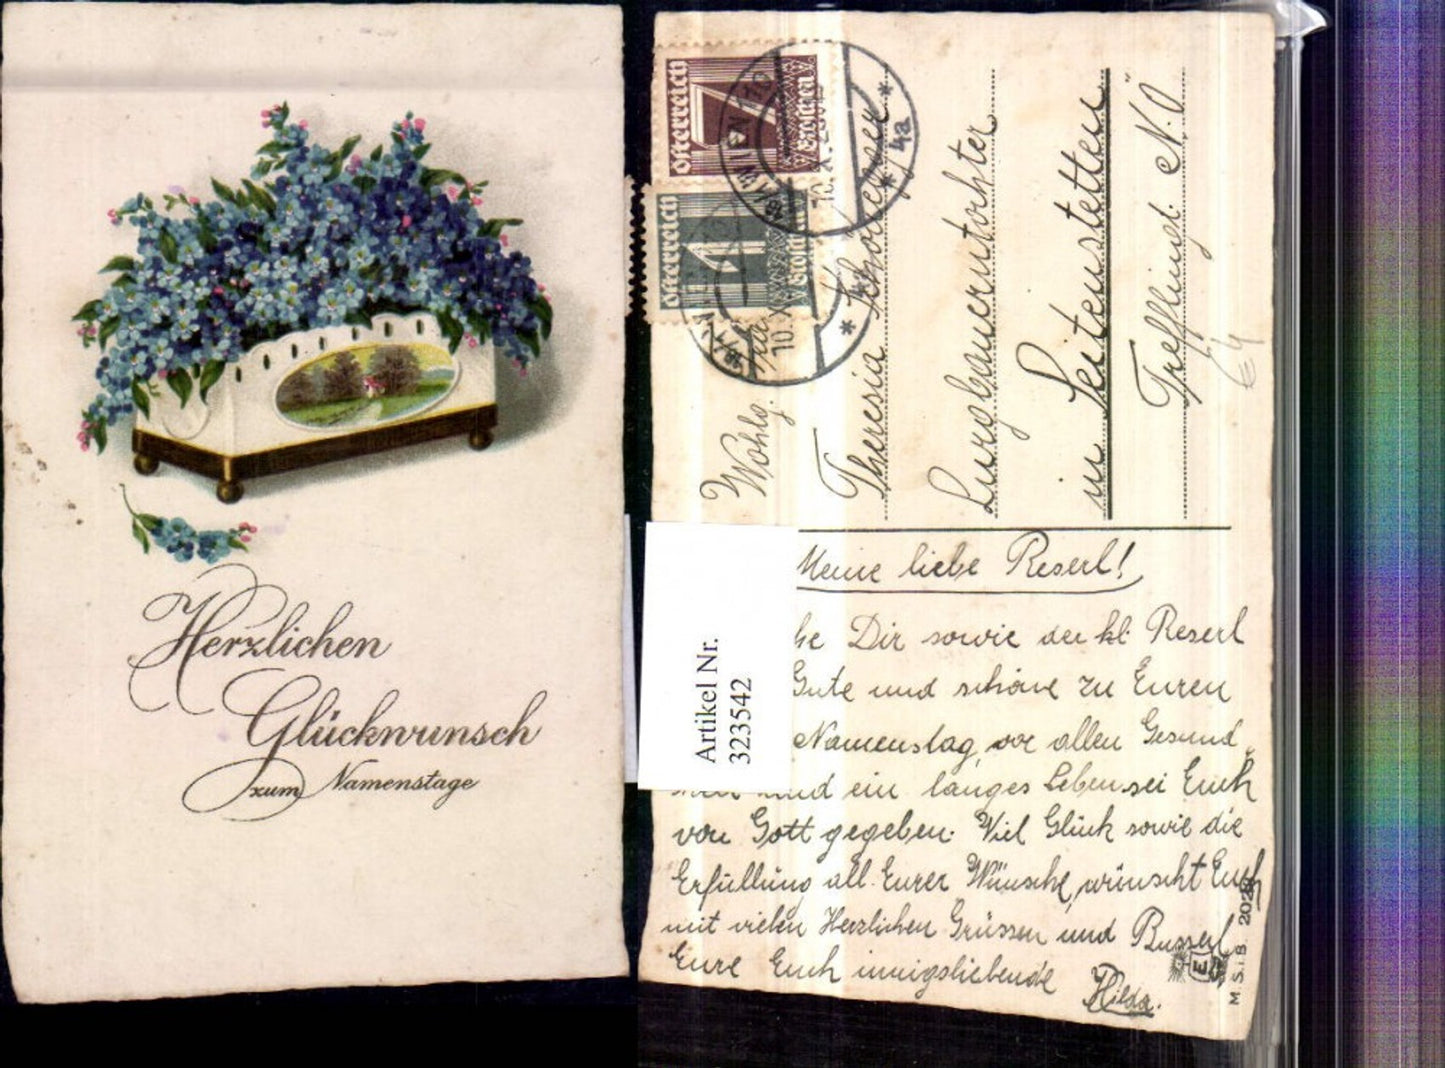 Herzlichen
Glückwunsch
zum Namenstage
Österreich
7
Groschen
Österreich
1
Groschen
WIEN 110
10.X.
4a
10.X.
Wohlg.
Theresia
in Seitenstetten
N.Ö
Artikel Nr.
323542
Meine liebe Reserl!
Dir sowie der kl. Reserl
Gute und schöne zu Euren
Namenstag, vor allen Gesund
und ein langes Leben sei Euch
von Gott gegeben. Viel Glück sowie die
Erfüllung all. Eurer Wünsche, wünscht Euch
mit vielen Herzlichen Grüssen und Busserl
Eure Euch innigsliebende
Hilda.
M.S.i.B.